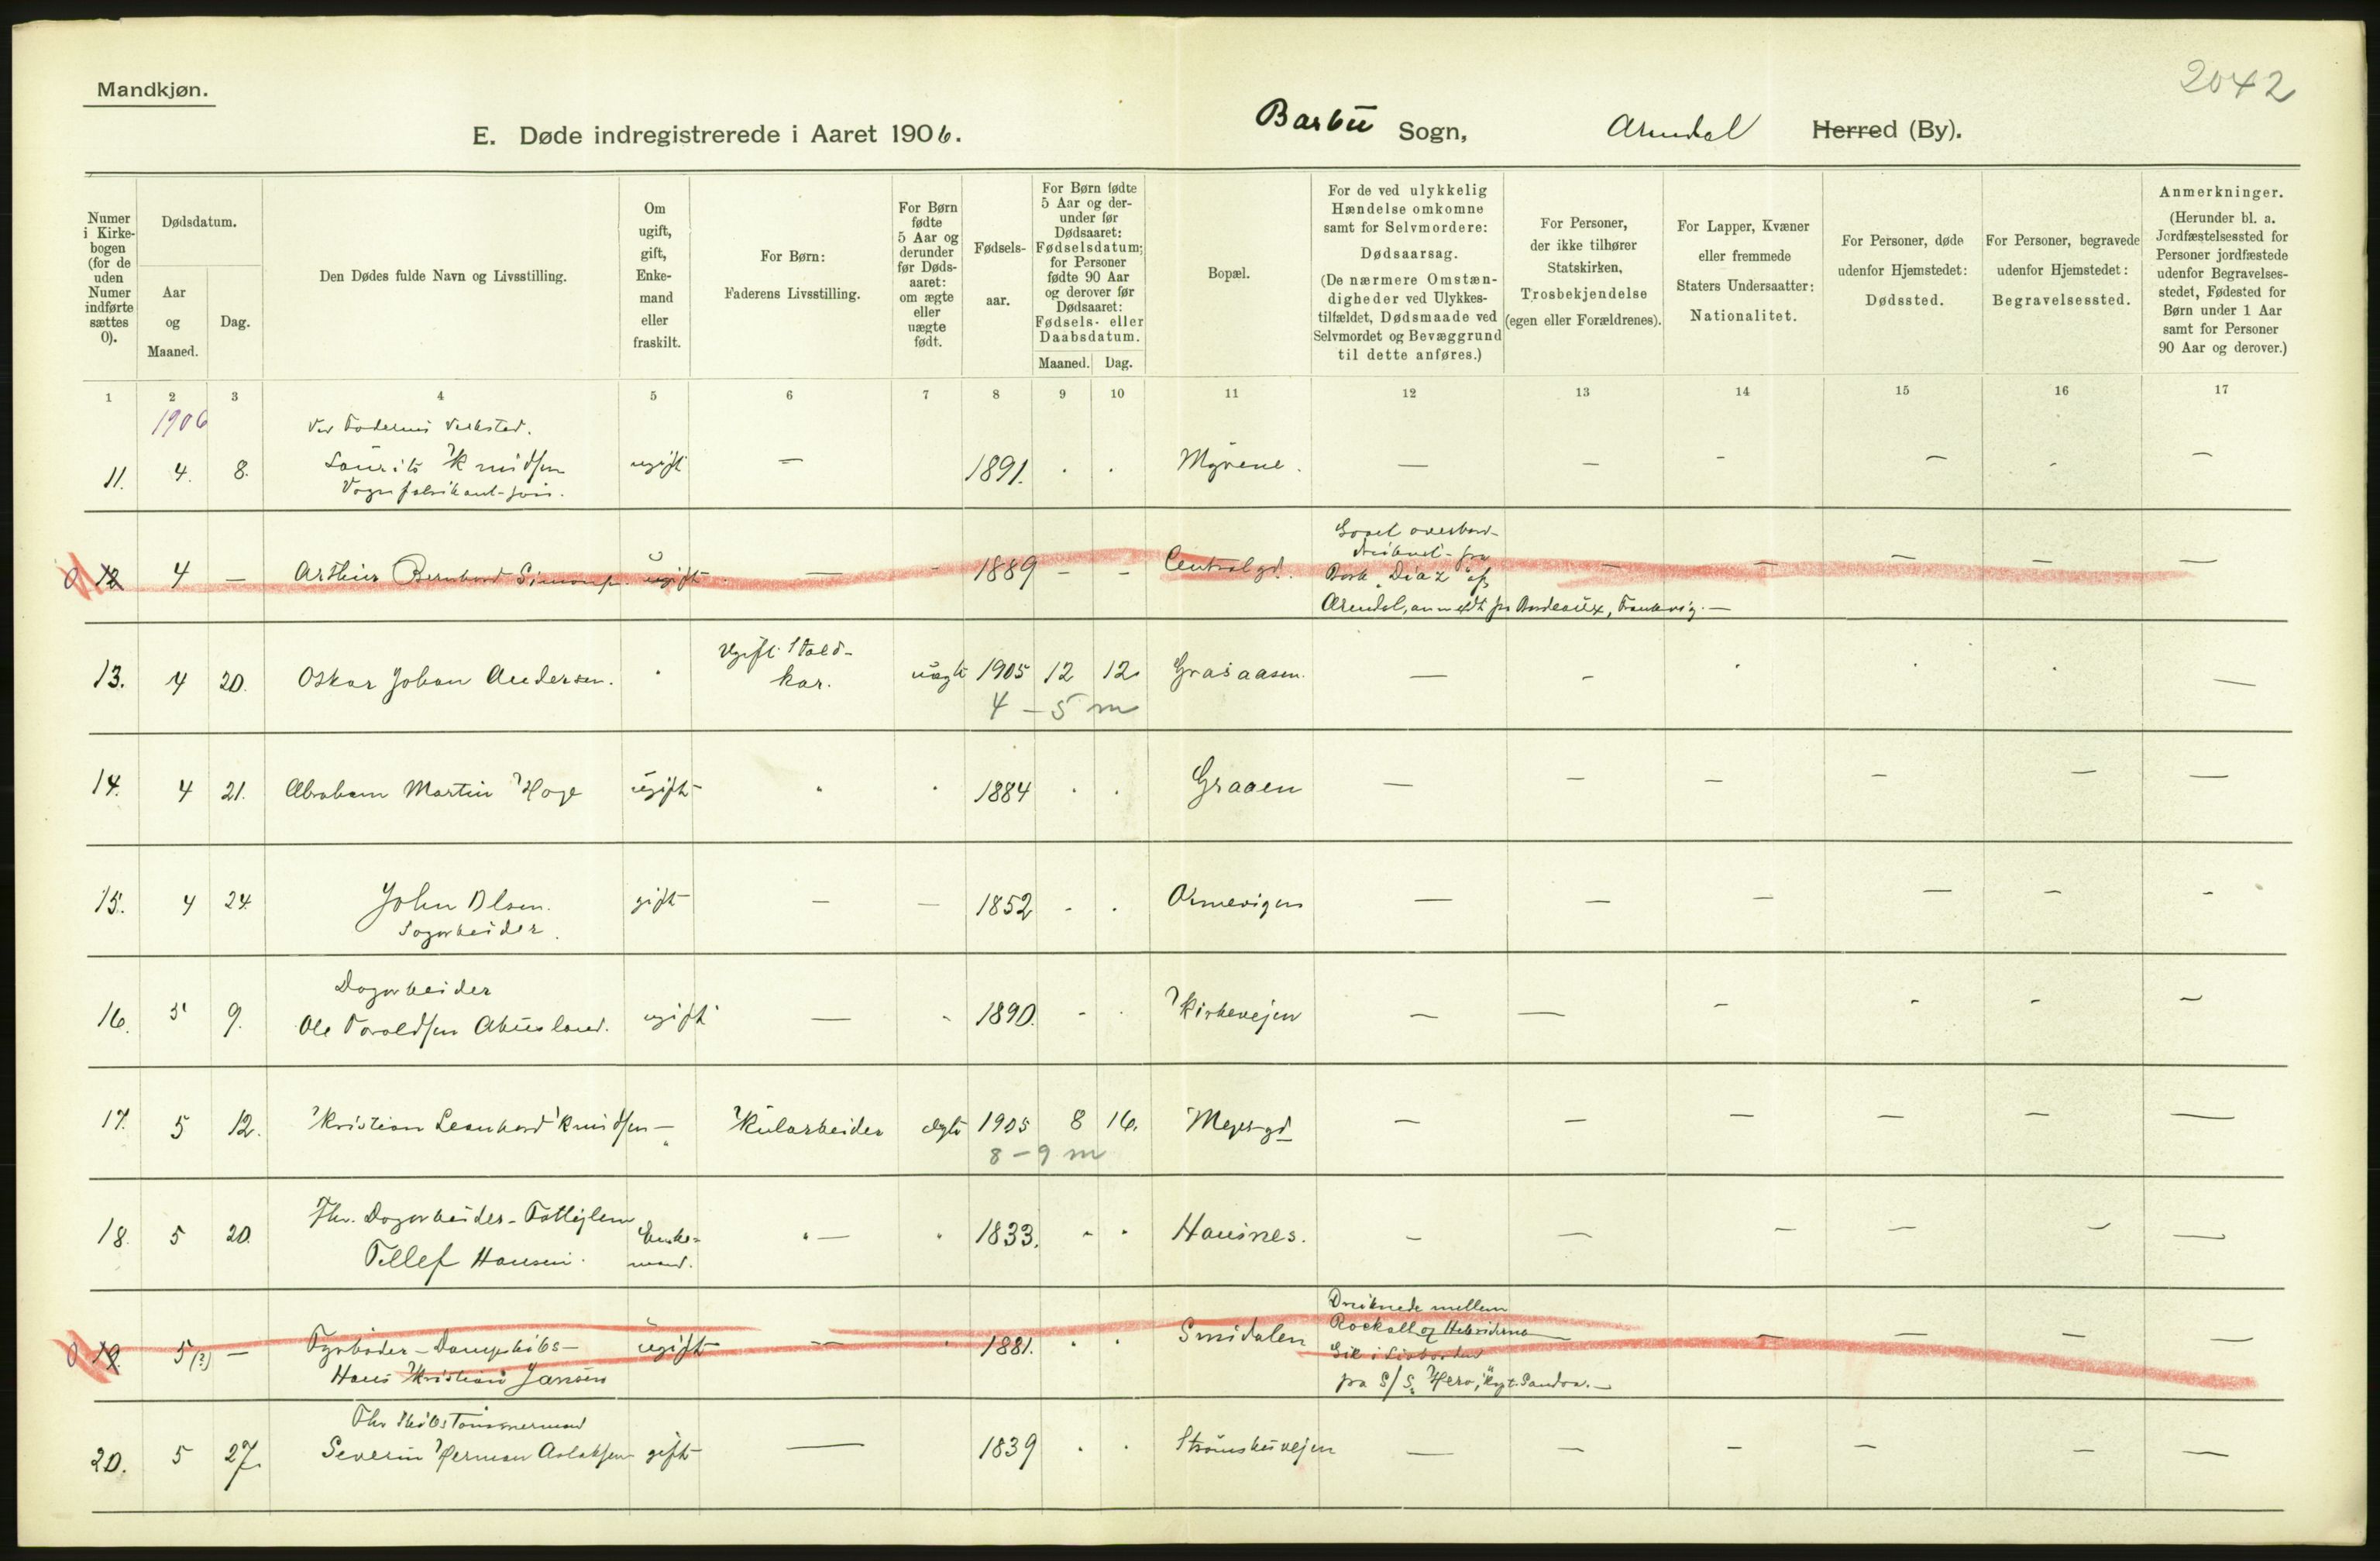 Mandkjøn.
2042
E. Døde indregistrerede i Aaret 1906. Barbu Sogn, Arendal Herred (By).
Numer i Kirkebogen (for de uden Numer indførte sættes 0).
Dødsdatum.
Aar og Maaned.
Dag.
Den Dødes fulde Navn og Livsstilling.
Om ugift, gift, Enkemand eller fraskilt.
For Børn: Faderens Livsstilling.
For Børn fødte 5 Aar og derunder før Dødsaaret: om ægte eller uægte født.
Fødselsaar.
For Børn fødte 5 Aar og derunder før Dødsaaret: Fødselsdatum; for Personer fødte 90 Aar og derover før Dødsaaret: Fødsels- eller Daabsdatum.
Maaned. Dag.
Bopæl.
For de ved ulykkelig Hændelse omkomne samt for Selvmordere: Dødsaarsag. (De nærmere Omstændigheder ved Ulykkestilfældet, Dødsmaade ved Selvmordet og Bevæggrund til dette anføres.)
For Personer, der ikke tilhører Statskirken, Trosbekjendelse (egen eller Forældrenes).
For Lapper, Kvæner eller fremmede Staters Undersaatter: Nationalitet.
For Personer, døde udenfor Hjemstedet: Dødssted.
For Personer, begravede udenfor Hjemstedet: Begravelsessted.
Anmerkninger. (Herunder bl. a. Jordfæstelsessted for Personer jordfæstede udenfor Begravelsesstedet, Fødested for Børn under 1 Aar samt for Personer 90 Aar og derover.)
1 2 3 4 5 6 7 8 9 10 11 12 13 14 15 16 17
1906
Ved Faderens Verksted.
11. 4. 8. Laurits Knudsen ugift — 1891. Myrene. — — — — — —
Vognfabrikant-søn.
0 12 4 — Arthur Bernhard Simons. ugift — - 1889 - - Centralgd. — — — — —
Gaael overbord-
druknet - fra
Bark "Diaz" af
Arendal, anmeldt fra Bordeaux, Frankrig. —
13. 4 20. Oskar Johan Andersen. Ugift Staldkar. uægte 1905 12 12. Graasaasen. — - —
4 - 5 m
14. 4 21. Abraham Martin Hoge ugift 1884 Graaen — — — — — —
15. 4 24. John Olsen. gift — — 1852 - . Ormevigen — — — — — -
Sagarbeider.
Dagarbeider
16. 5 9. Ole Taraldsen Akusland. ugift — - 1890. - . Kirkevejen — — — - - —
17. 5 12. Kristian Leonhard Knudsen — Kularbeider ægte 1905 8 16. Meyersgd — — — — — —
8 - 9 m
18. 5 20. Fhv. Dagarbeider - Fattiglem Enkemand. — 1833. Hausnes. — — — — — —
Tellef Hansen.
0 19 5 (?) — Fyrbøder - Dampskibs — ugift — 1881. Smidalen — — — —
Hans Kristian Jansen
Druknede mellem
Rockall og Hebriderne —
Gik i Livbaaden
fra S/S. "Hero," Kapt. Sandva. —
Fhv Skibstømmermand
20. 5 27. Severin Herman Aslaksen gift — 1839 Strømsbuvejen — — — — — —